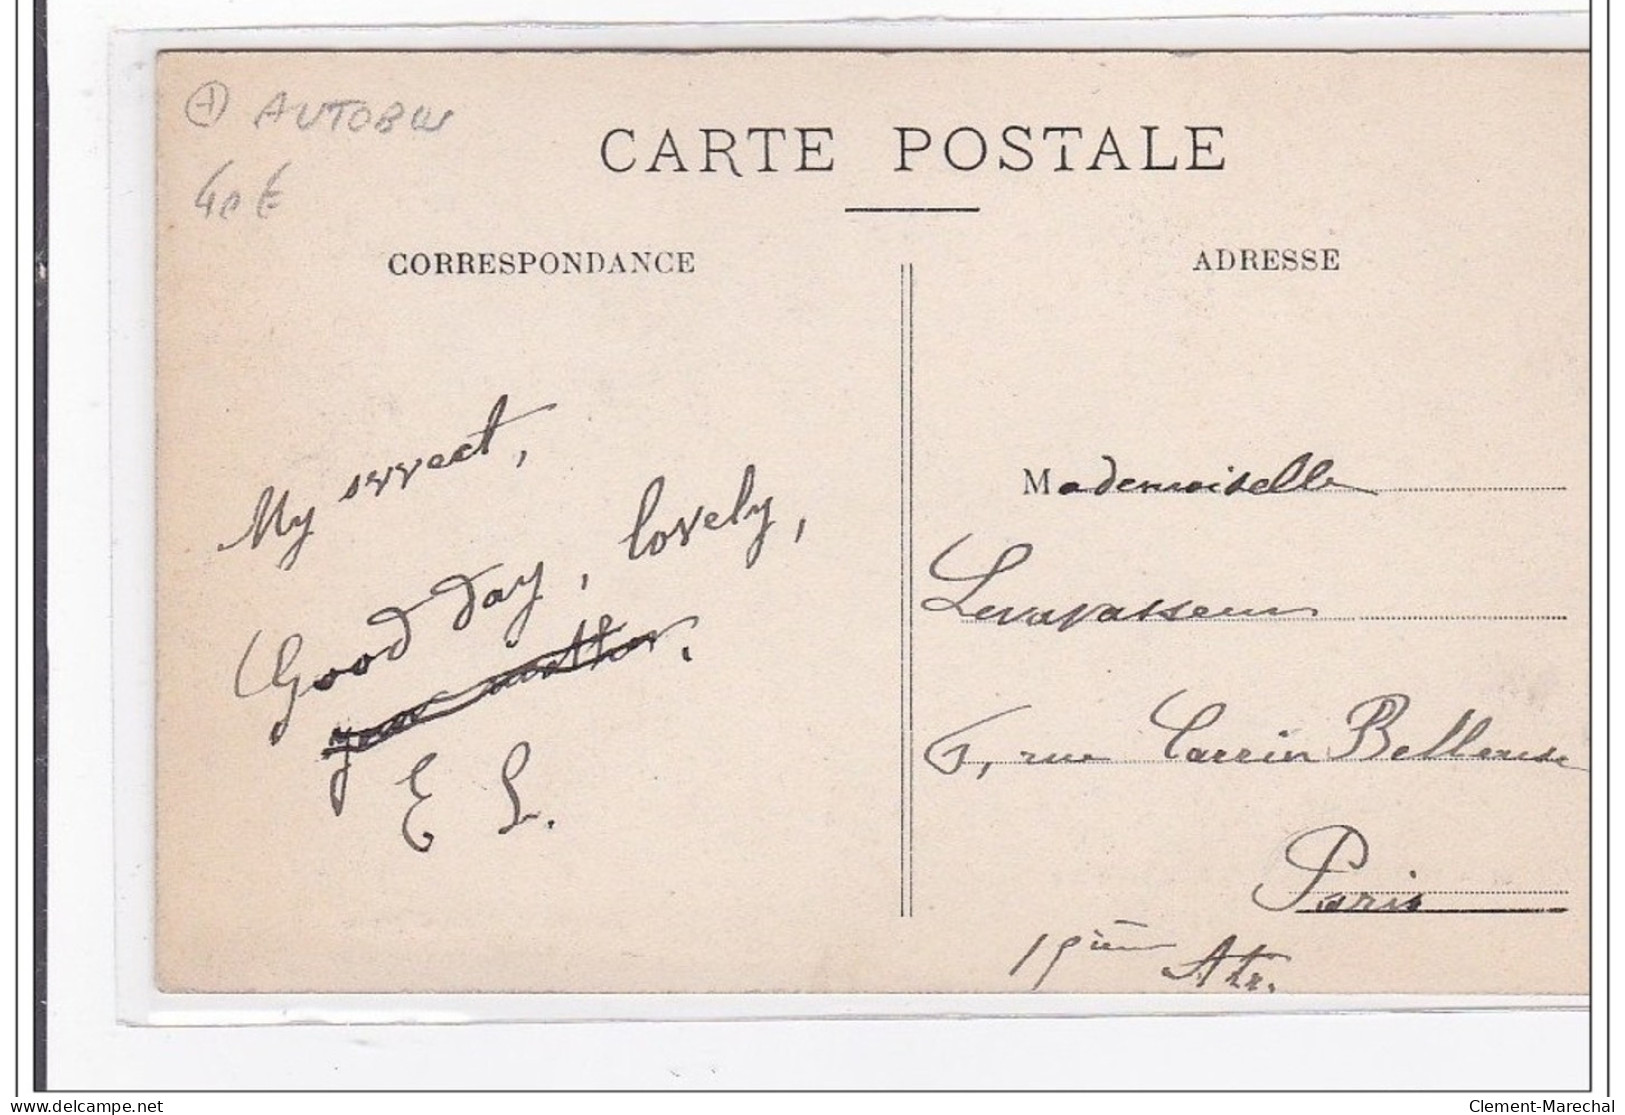 AUTOBUS
40 €
CARTE POSTALE
CORRESPONDANCE
ADRESSE
My sweet,
Good day, lovely,
your mother.
E L.
Mademoiselle
Levavasseur
6, rue Carrier Belleuse
Paris
15ième Arr.
delcampe.net
Clement-Marechal